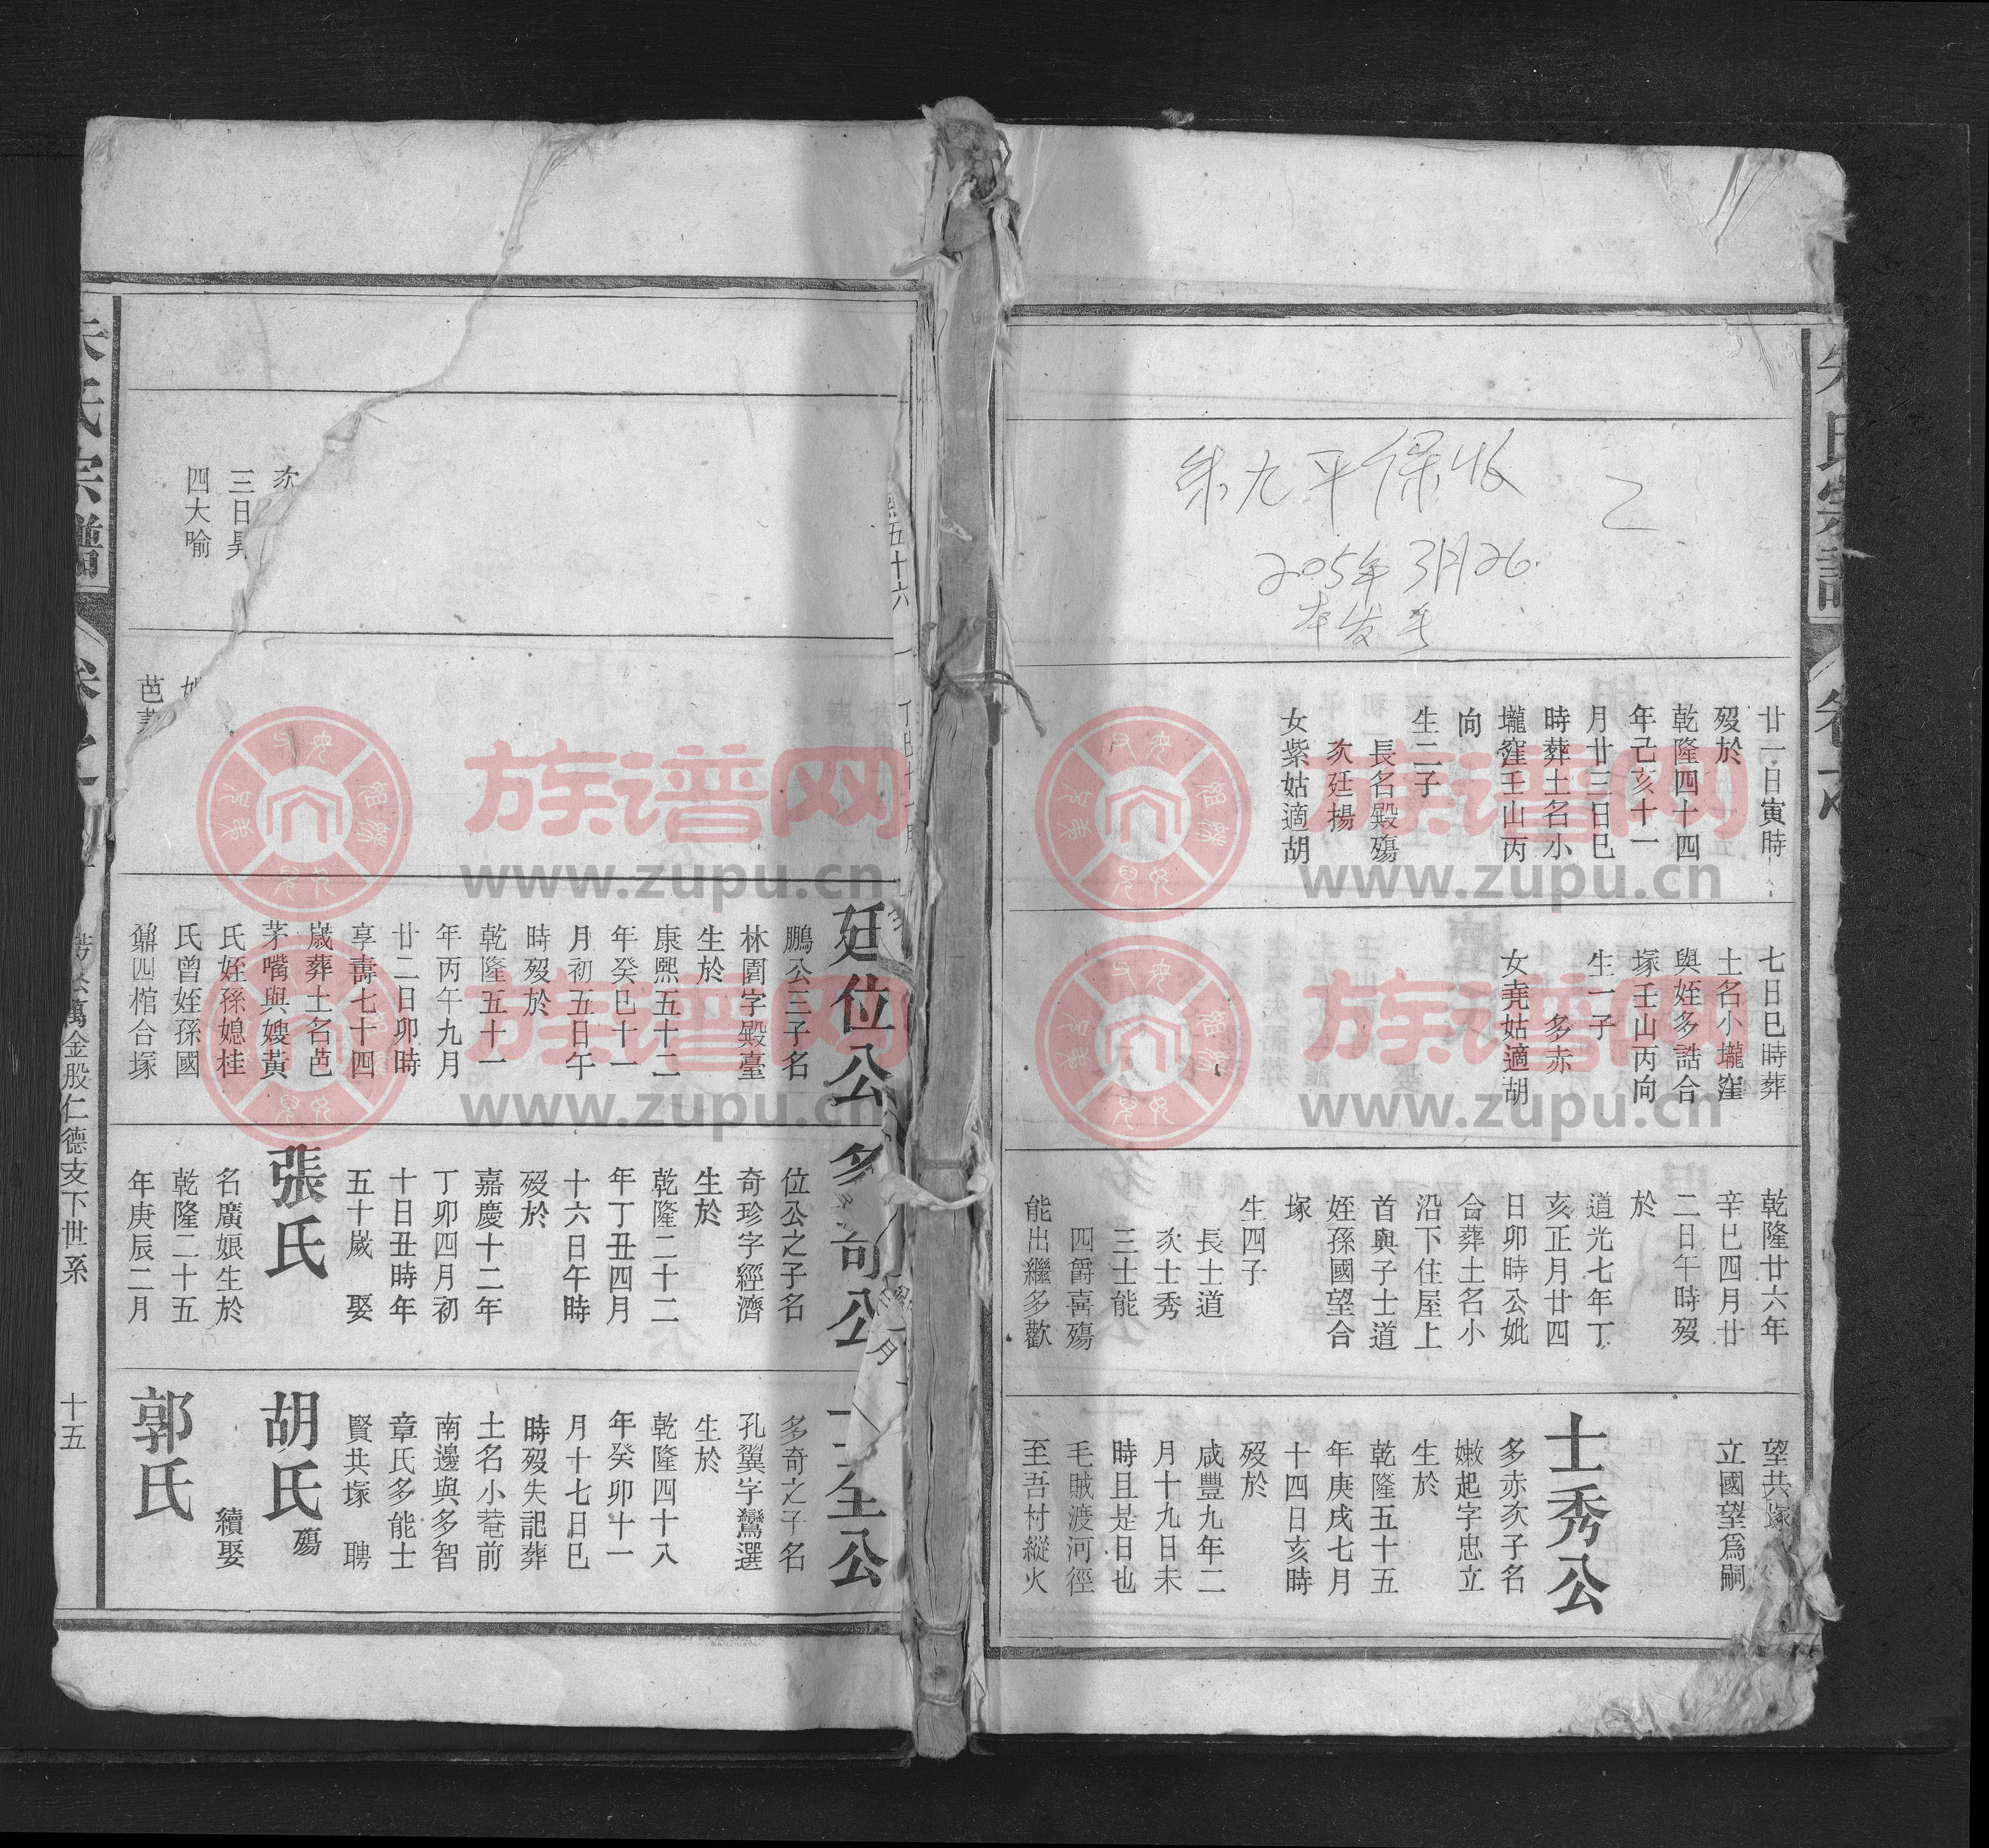 朱九平保收
乙
2005年3月26.
本发手
廿一日寅時
歿於
乾隆四十四
年己亥十一
月廿三日巳
時葬土名小
壠窪壬山丙
向
生二子
長名殿殤
次廷揚
女紫姑適胡
七日巳時葬
土名小壠窪
與姪多誥合
塚壬山丙向
生一子
多赤
女堯姑適胡
乾隆廿六年
辛巳四月廿
二日午時歿
於
道光七年丁
亥正月廿四
日卯時公妣
合葬土名小
沿下住屋上
首與子士道
姪孫國望合
塚
生四子
長士道
次士秀
三士能
四爵喜殤
能出繼多歡
望共塚
立國望爲嗣
士秀公
多赤次子名
嫩起字忠立
生於
乾隆五十五
年庚戌七月
十四日亥時
歿於
咸豐九年二
月十九日未
時且是日也
毛賊渡河徑
至吾村縱火
五十六
次
三日
四大喻
芭
廷位公
鵬公三子名
林園字殿臺
生於
康熙五十二
年癸巳十一
月初五日午
時歿於
乾隆五十一
年丙午九月
廿二日卯時
享壽七十四
歲葬土名芭
茅嘴與嫂黃
氏姪孫媳桂
氏曾姪孫國
鼐四棺合塚
多奇公
位公之子名
奇珍字經濟
生於
乾隆二十二
年丁丑四月
十六日午時
歿於
嘉慶十二年
丁卯四月初
十日丑時年
五十歲 娶
張氏
名廣娘生於
乾隆二十五
年庚辰二月
士全公
多奇之子名
孔翼字鸞選
生於
乾隆四十八
年癸卯十一
月十七日巳
時歿失記葬
土名小菴前
南邊與多智
章氏多能士
賢共塚 聘
胡氏殤
續娶
郭氏
朱氏宗譜
萬金股仁德支下世系
十五
族谱网
www.zupu.cn
族谱网
www.zupu.cn
族谱网
www.zupu.cn
族谱网
www.zupu.cn